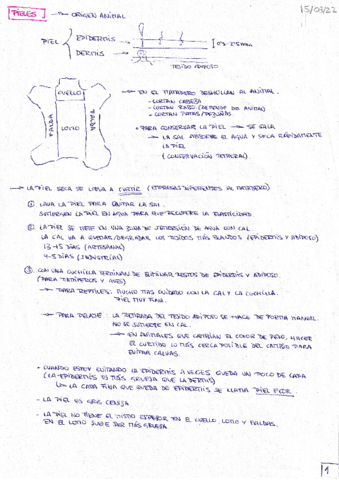 15/03/22
PIELES → ORIGEN ANIMAL
PIEL
EPIDERMIS
DERMIS
0'3-2'5mm
TEJIDO ADIPOSO
CUELLO
FALDA
LOMO
FALDA
→ EN EL MATADERO DESUELLAN AL ANIMAL.
- CORTAN CABEZA
- CORTAN RABO (DEPENDE DEL ANIMAL)
- CORTAN PATAS/PEZUÑAS
• PARA CONSERVAR LA PIEL → SE SALA
→ LA SAL ABSORBE EL AGUA Y SECA RÁPIDAMENTE
LA PIEL
(CONSERVACIÓN TEMPORAL)
→ LA PIEL SECA SE LLEVA A CURTIR (EMPRESAS DIFERENTES AL MATADERO)
① LAVA LA PIEL PARA QUITAR LA SAL.
SUMERGEN LA PIEL EN AGUA PARA QUE RECUPERE LA ELASTICIDAD.
② LA PIEL SE METE EN UNA BALSA DE INMERSIÓN DE AGUA CON CAL
LA CAL VA A QUEMAR/DEGRADAR LOS TEJIDOS MÁS BLANDOS (EPIDERMIS Y ADIPOSO)
13-15 DÍAS (ARTESANAL)
4-5 DÍAS (INDUSTRIAL)
③ CON UNA CUCHILLA TERMINAN DE ELIMINAR RESTOS DE EPIDERMIS Y ADIPOSO
(PARA MAMÍFEROS Y AVES)
→ PARA REPTILES: MUCHO MÁS CUIDADO CON LA CAL Y LA CUCHILLA.
PIEL MUY FINA.
→ PARA PELAJE: LA RETIRADA DEL TEJIDO ADIPOSO SE HACE DE FORMA MANUAL
NO SE SUMERGE EN CAL.
→ EN ANIMALES QUE CAMBIAN EL COLOR DE PELO, HACER
EL CURTIDO LO MÁS CERCA POSIBLE DEL CAMBIO PARA
EVITAR CALVAS.
- CUANDO ESTOY QUITANDO LA EPIDERMIS A VECES QUEDA UN POCO DE CAPA
(LA EPIDERMIS ES MÁS GRUESA QUE LA DERMIS)
↳ LA CAPA FINA QUE QUEDA DE EPIDERMIS SE LLAMA PIEL FLOR.
- LA PIEL ES GRIS CENIZA
- LA PIEL NO TIENE EL MISMO ESPESOR EN EL CUELLO, LOMO Y FALDAS.
EN EL LOMO SUELE SER MÁS GRUESA.
1